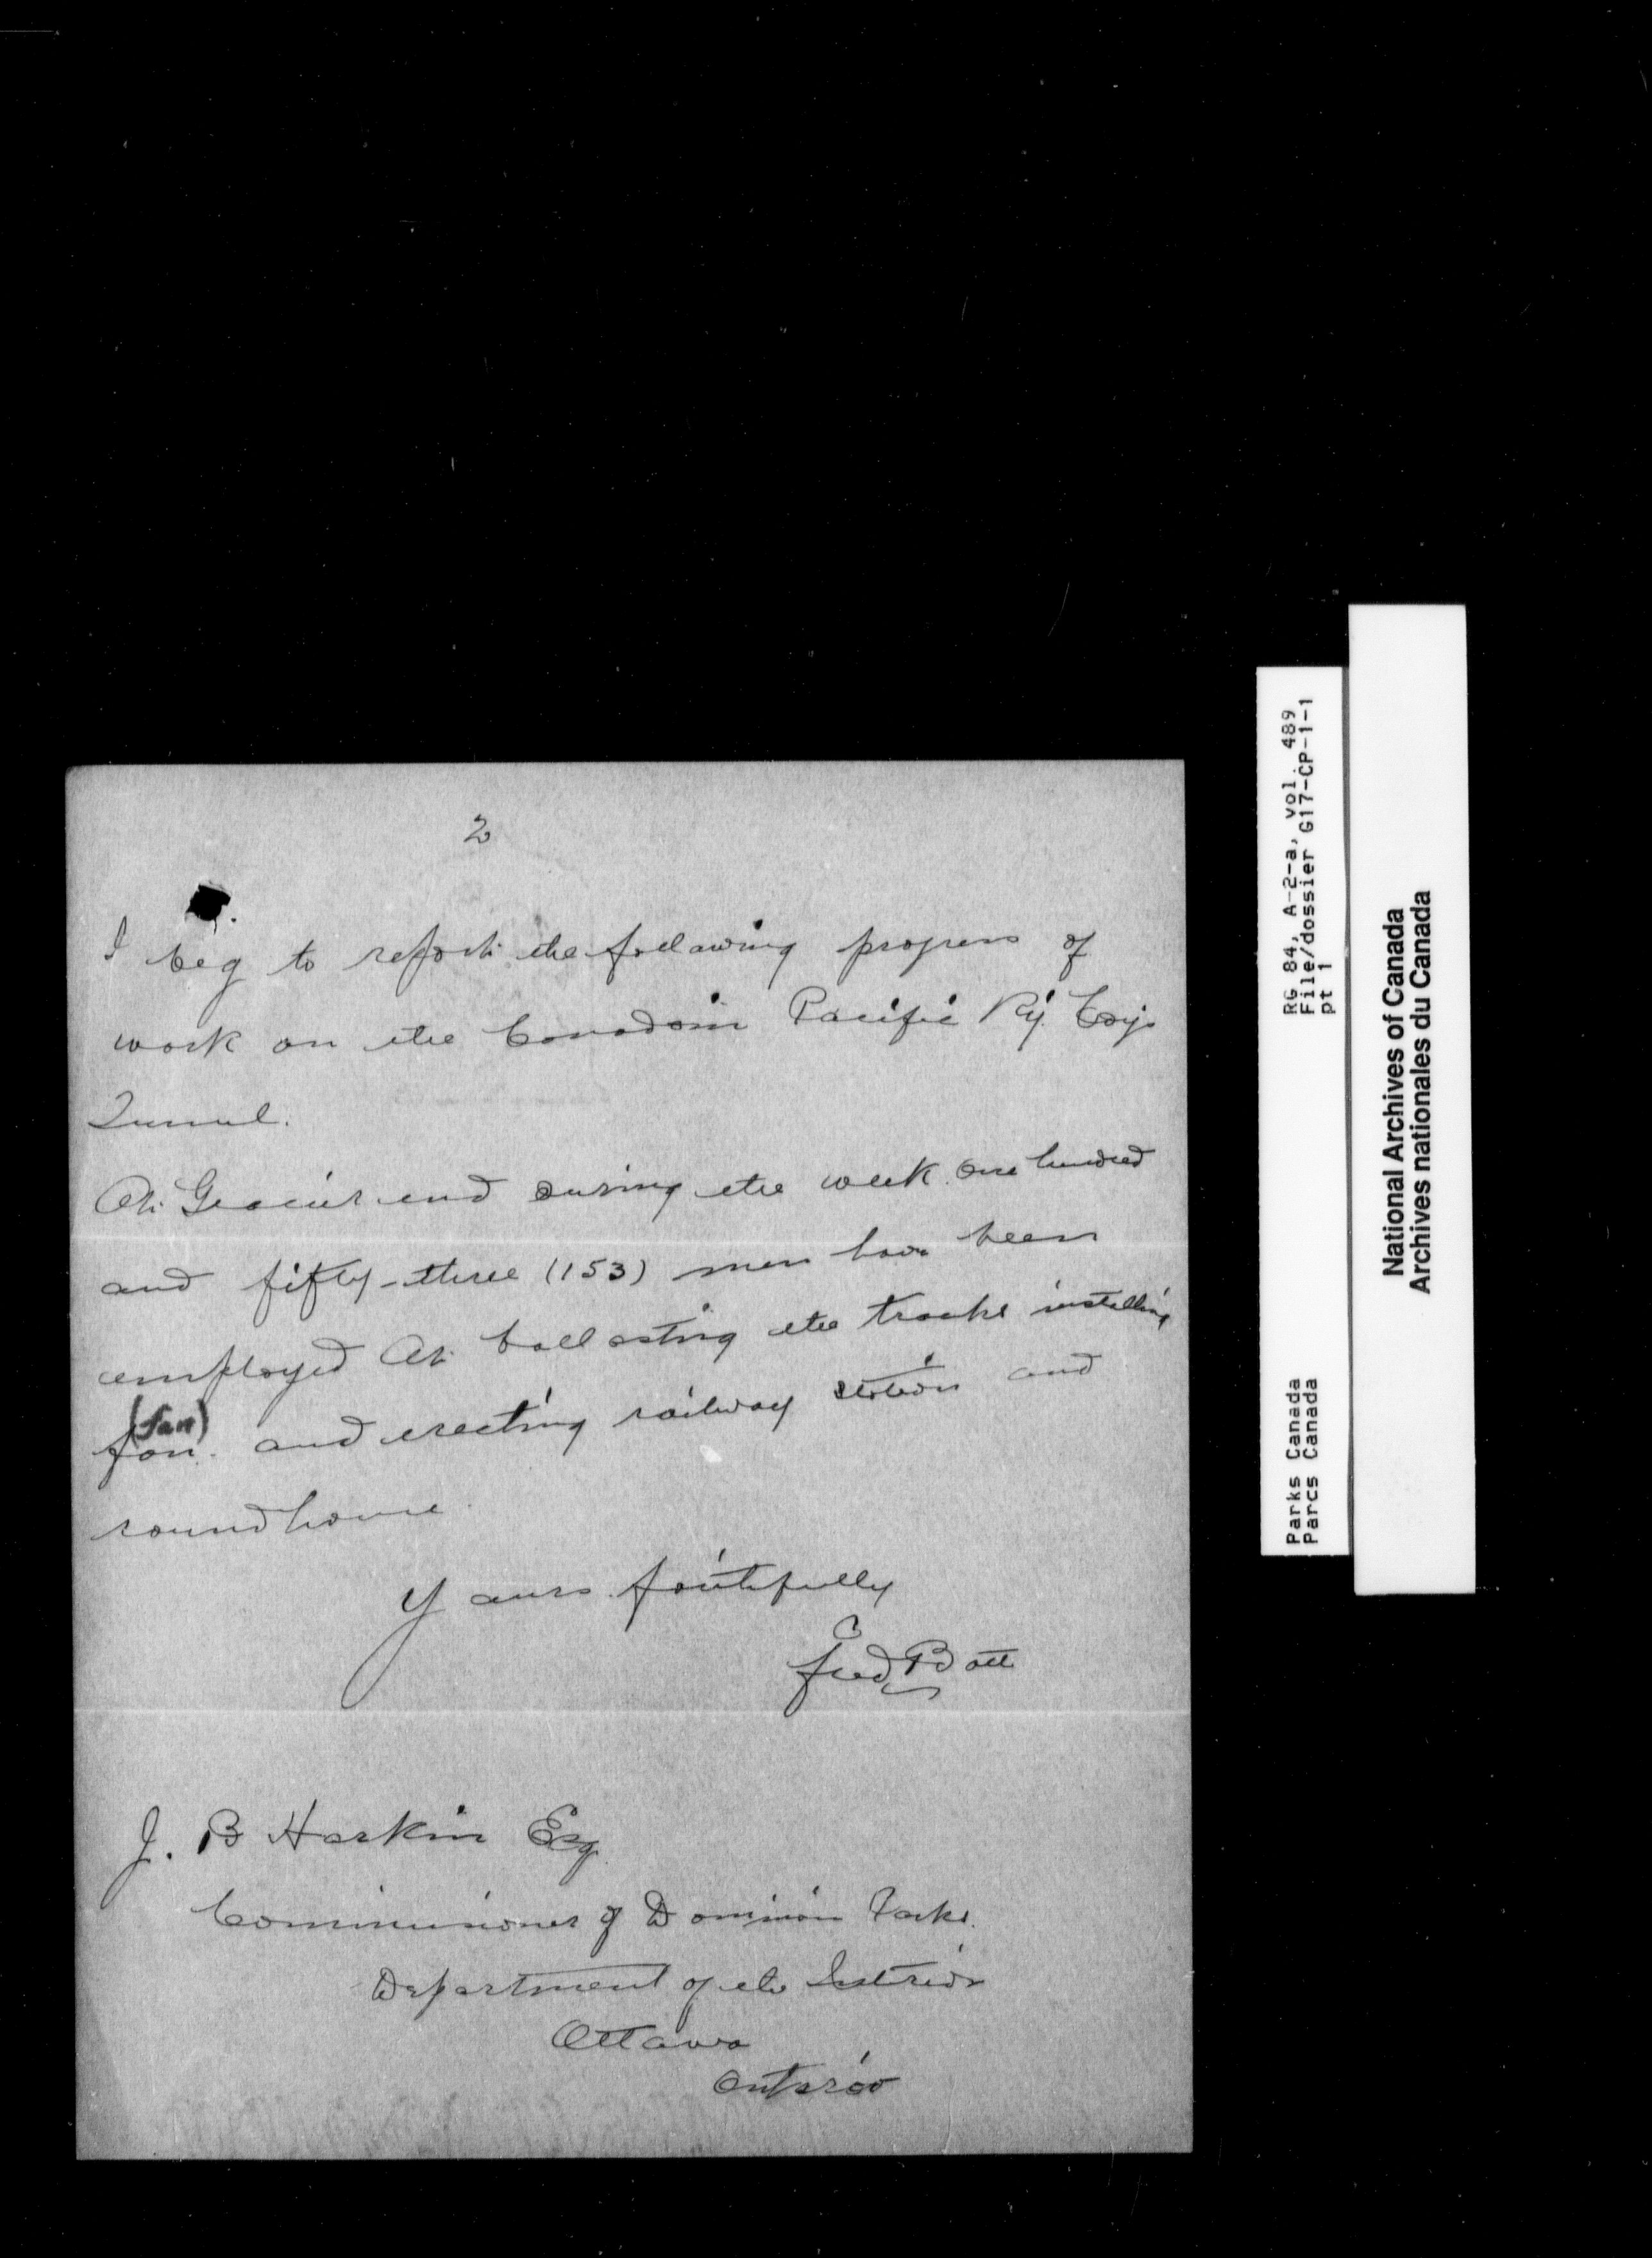 2
I beg to report the following progress of
work on the Canadain Pacific Ry Coys
Tunnel.
At Glacier end during the week one hundred
and fifty-three (153) men have been
employed At ballasting the tracks installing
(fan)
fan. and erecting railway station and
roundhouse.
Yours faithfully
Fred Batt
J. B Harkin Esq.
Commissioner of Dominion Parks.
Department of the Interior
Ottawa
Ontario
RG 84, A-2-a, vol. 489
File/dossier G17-CP-1-1
pt 1
Parks Canada
Parcs Canada
National Archives of Canada
Archives nationales du Canada